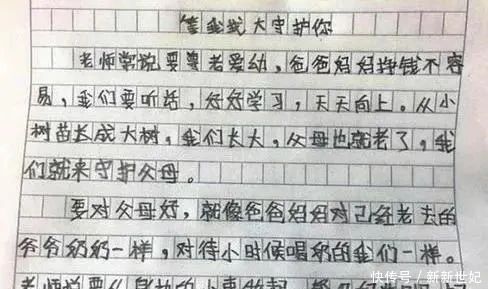 等我长大守护你
老师常说要尊老爱幼，爸爸妈妈挣钱不容
易，我们要听话，好好学习，天天向上。从小
树苗长成大树，我们长大，父母也就老了，我
们就来守护父母。
要对父母好，就像爸爸妈妈对已经老去的
爷爷奶奶一样，对待小时候喝奶的我们一样。
老师说要从身边的小事做起
快传号 / 新新世妃